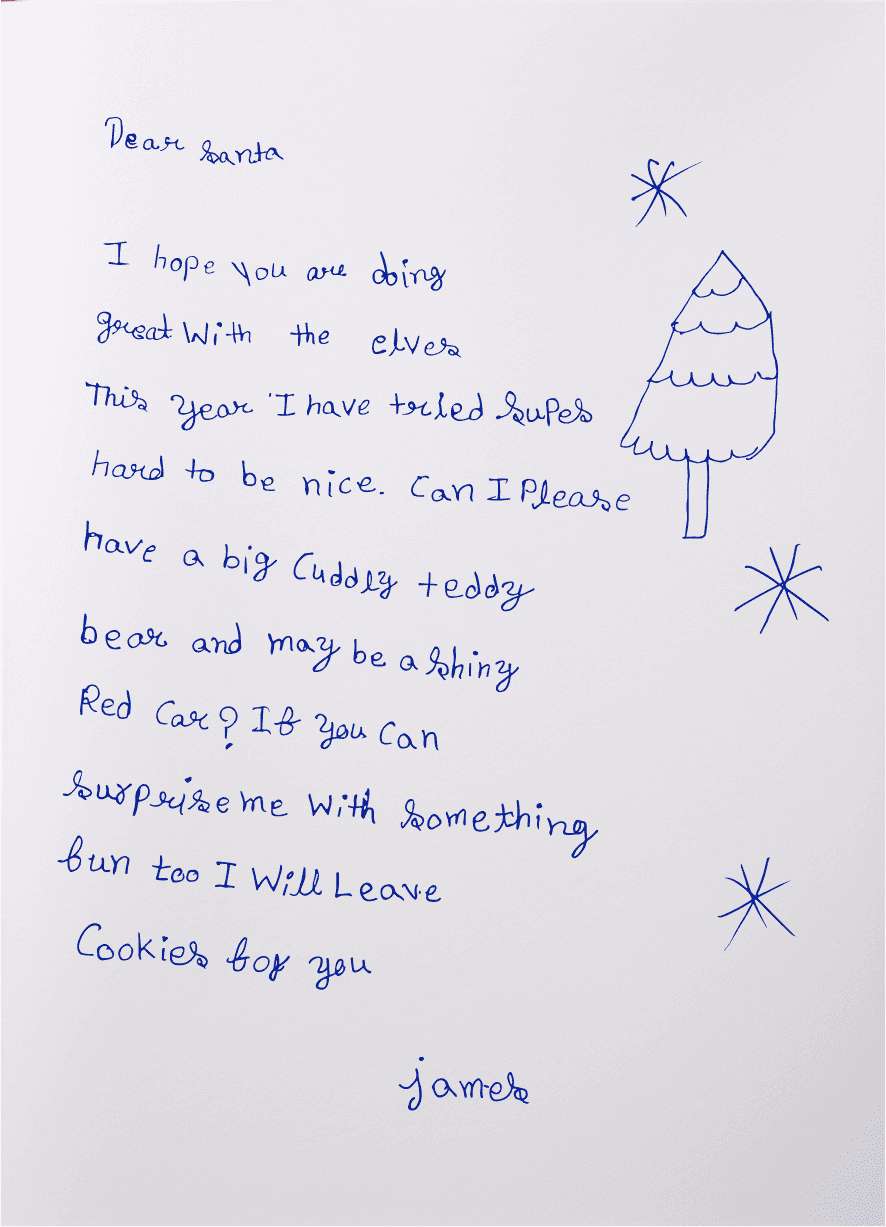 Dear Santa
I hope you are doing
great With the elves
This year I have tried supes
hard to be nice. Can I Please
have a big Cuddly teddy
bear and may be a shiny
Red Car? If you Can
surprise me With something
fun too I Will Leave
Cookies for you
james